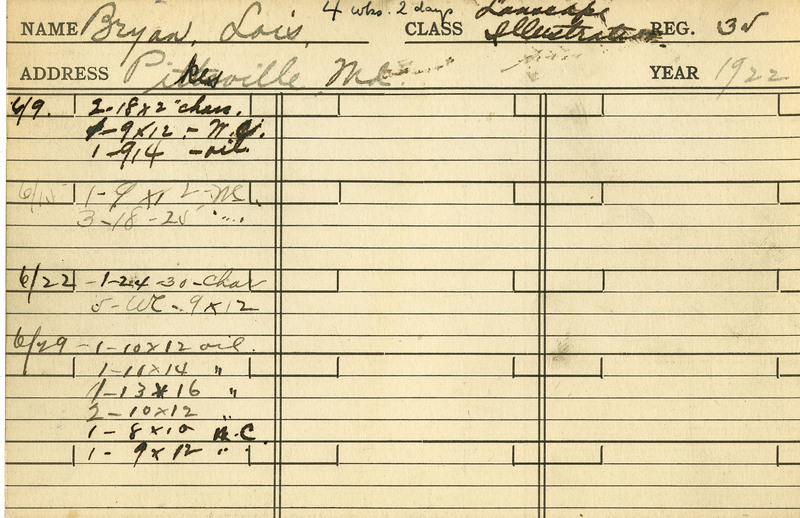 NAME Bryan, Lois 4 wks. 2 days CLASS Lanscape Illustration REG. 35
ADDRESS Pittsville Md. YEAR 1922
6/9. 2-18x2" char.
1-9x12 - W.C.
1-914 - oil.
6/15 1-9x12-
3-18-25 "
6/22 -1-24-30-Char
5-WC-9x12
6/29-1-10x12 oil.
1-11x14 "
1-13x16 "
2-10x12 "
1-8x10 W.C.
1-9x12 " "